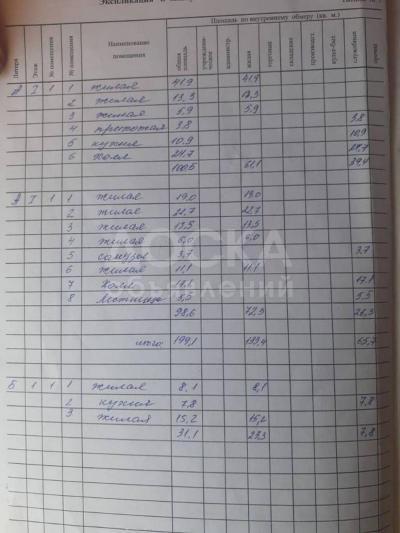 Экспликация
Площадь по внутреннему обмеру (кв. м.)
Литера
Этаж
№ помещения
№ помещения
Наименование помещения
общая площадь
учрежденческое
администр.
жилая
торговый
складские
производст.
культ-быт.
служебная
прочая
А I 1 1 жилая 41,9 41,9
2 жилая 13,3 13,3
3 жилая 5,9 5,9
4 прихожая 3,8 3,8
5 кухня 10,9 10,9
6 Холл 24,7 24,7
100,5 61,1 39,4
А I 1 1 жилая 19,0 19,0
2 жилая 22,7 22,7
3 жилая 13,5 13,5
4 жилая 6,0 6,0
5 санузел 3,7 3,7
6 жилая 11,1 11,1
7 Холл 17,1
8 Лестница 5,5 5,5
98,6 72,3 26,3
итого 199,1 133,4 65,7
ДОСКА
объявлений
Б 1 1 1 жилая 8,1 8,1
2 кухня 7,8 7,8
3 жилая 15,2 15,2
31,1 23,3 7,8